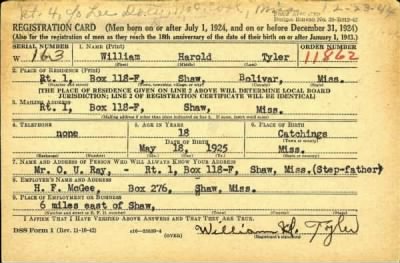 REGISTRATION CARD (Men born on or after July 1, 1924, and on or before December 31, 1924)
(Also for the registration of men as they reach the 18th anniversary of the date of their birth on or after January 1, 1943.)
SERIAL NUMBER 1. NAME (Print) ORDER NUMBER
W 163 William Harold Tyler 11862
2. PLACE OF RESIDENCE (Print)
Rt. 1, Box 118-F, Shaw, Bolivar, Miss.
[THE PLACE OF RESIDENCE GIVEN ON LINE 2 ABOVE WILL DETERMINE LOCAL BOARD
JURISDICTION; LINE 2 OF REGISTRATION CERTIFICATE WILL BE IDENTICAL]
3. MAILING ADDRESS
Rt. 1, Box 118-F, Shaw, Miss.
[Mailing address if other than place indicated on line 2. If same, insert word same]
4. TELEPHONE 5. AGE IN YEARS 6. PLACE OF BIRTH
none 18 Catchings
DATE OF BIRTH
May 18, 1925 Miss.
7. NAME AND ADDRESS OF PERSON WHO WILL ALWAYS KNOW YOUR ADDRESS
Mr. O. U. Ray, - Rt. 1, Box 118-F, Shaw, Miss. (Step-father)
8. EMPLOYER'S NAME AND ADDRESS
H. F. McGee, Box 276, Shaw, Miss.
9. PLACE OF EMPLOYMENT OR BUSINESS
6 miles east of Shaw,
I AFFIRM THAT I HAVE VERIFIED ABOVE ANSWERS AND THAT THEY ARE TRUE.
DSS Form 1 (Rev. 11-16-42) (OVER) William H. Tyler
(Registrant's signature)